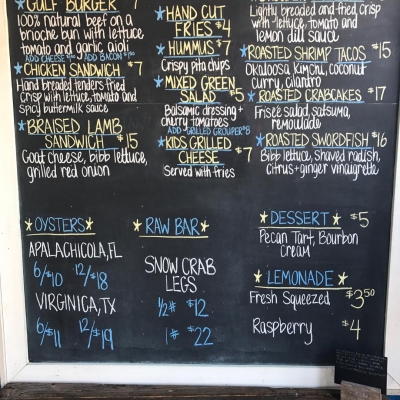 GULF BURGER 7
100% natural beef on a
brioche bun with lettuce
tomato and garlic aioli
ADD CHEESE ADD BACON
CHICKEN SANDWICH 7
Hand breaded tenders fried
crisp with lettuce, tomato and
spicy buttermilk sauce
BRAISED LAMB
SANDWICH $15
Goat cheese, bibb lettuce,
grilled red onion
HAND CUT
FRIES $4
HUMMUS 7
Crispy pita chips
MIXED GREEN
SALAD $5
Balsamic dressing +
cherry tomatoes
ADD GRILLED GROUPER $8
KIDS GRILLED
CHEESE $7
Served with fries
Lightly breaded and fried crisp
with lettuce, tomato and
lemon dill sauce
ROASTED SHRIMP TACOS $15
Okaloosa Kimchi, coconut
curry, cilantro
ROASTED CRABCAKES $17
Frisée salad, satsuma,
remoulade
ROASTED SWORDFISH $16
Bibb lettuce, shaved radish,
citrus + ginger vinaigrette
OYSTERS
APALACHICOLA, FL
6/$10 12/$18
VIRGINICA, TX
6/$11 12/$19
RAW BAR
SNOW CRAB
LEGS
1/2# $12
1# $22
DESSERT $5
Pecan Tart, Bourbon
Cream
LEMONADE
Fresh Squeezed $3.50
Raspberry $4